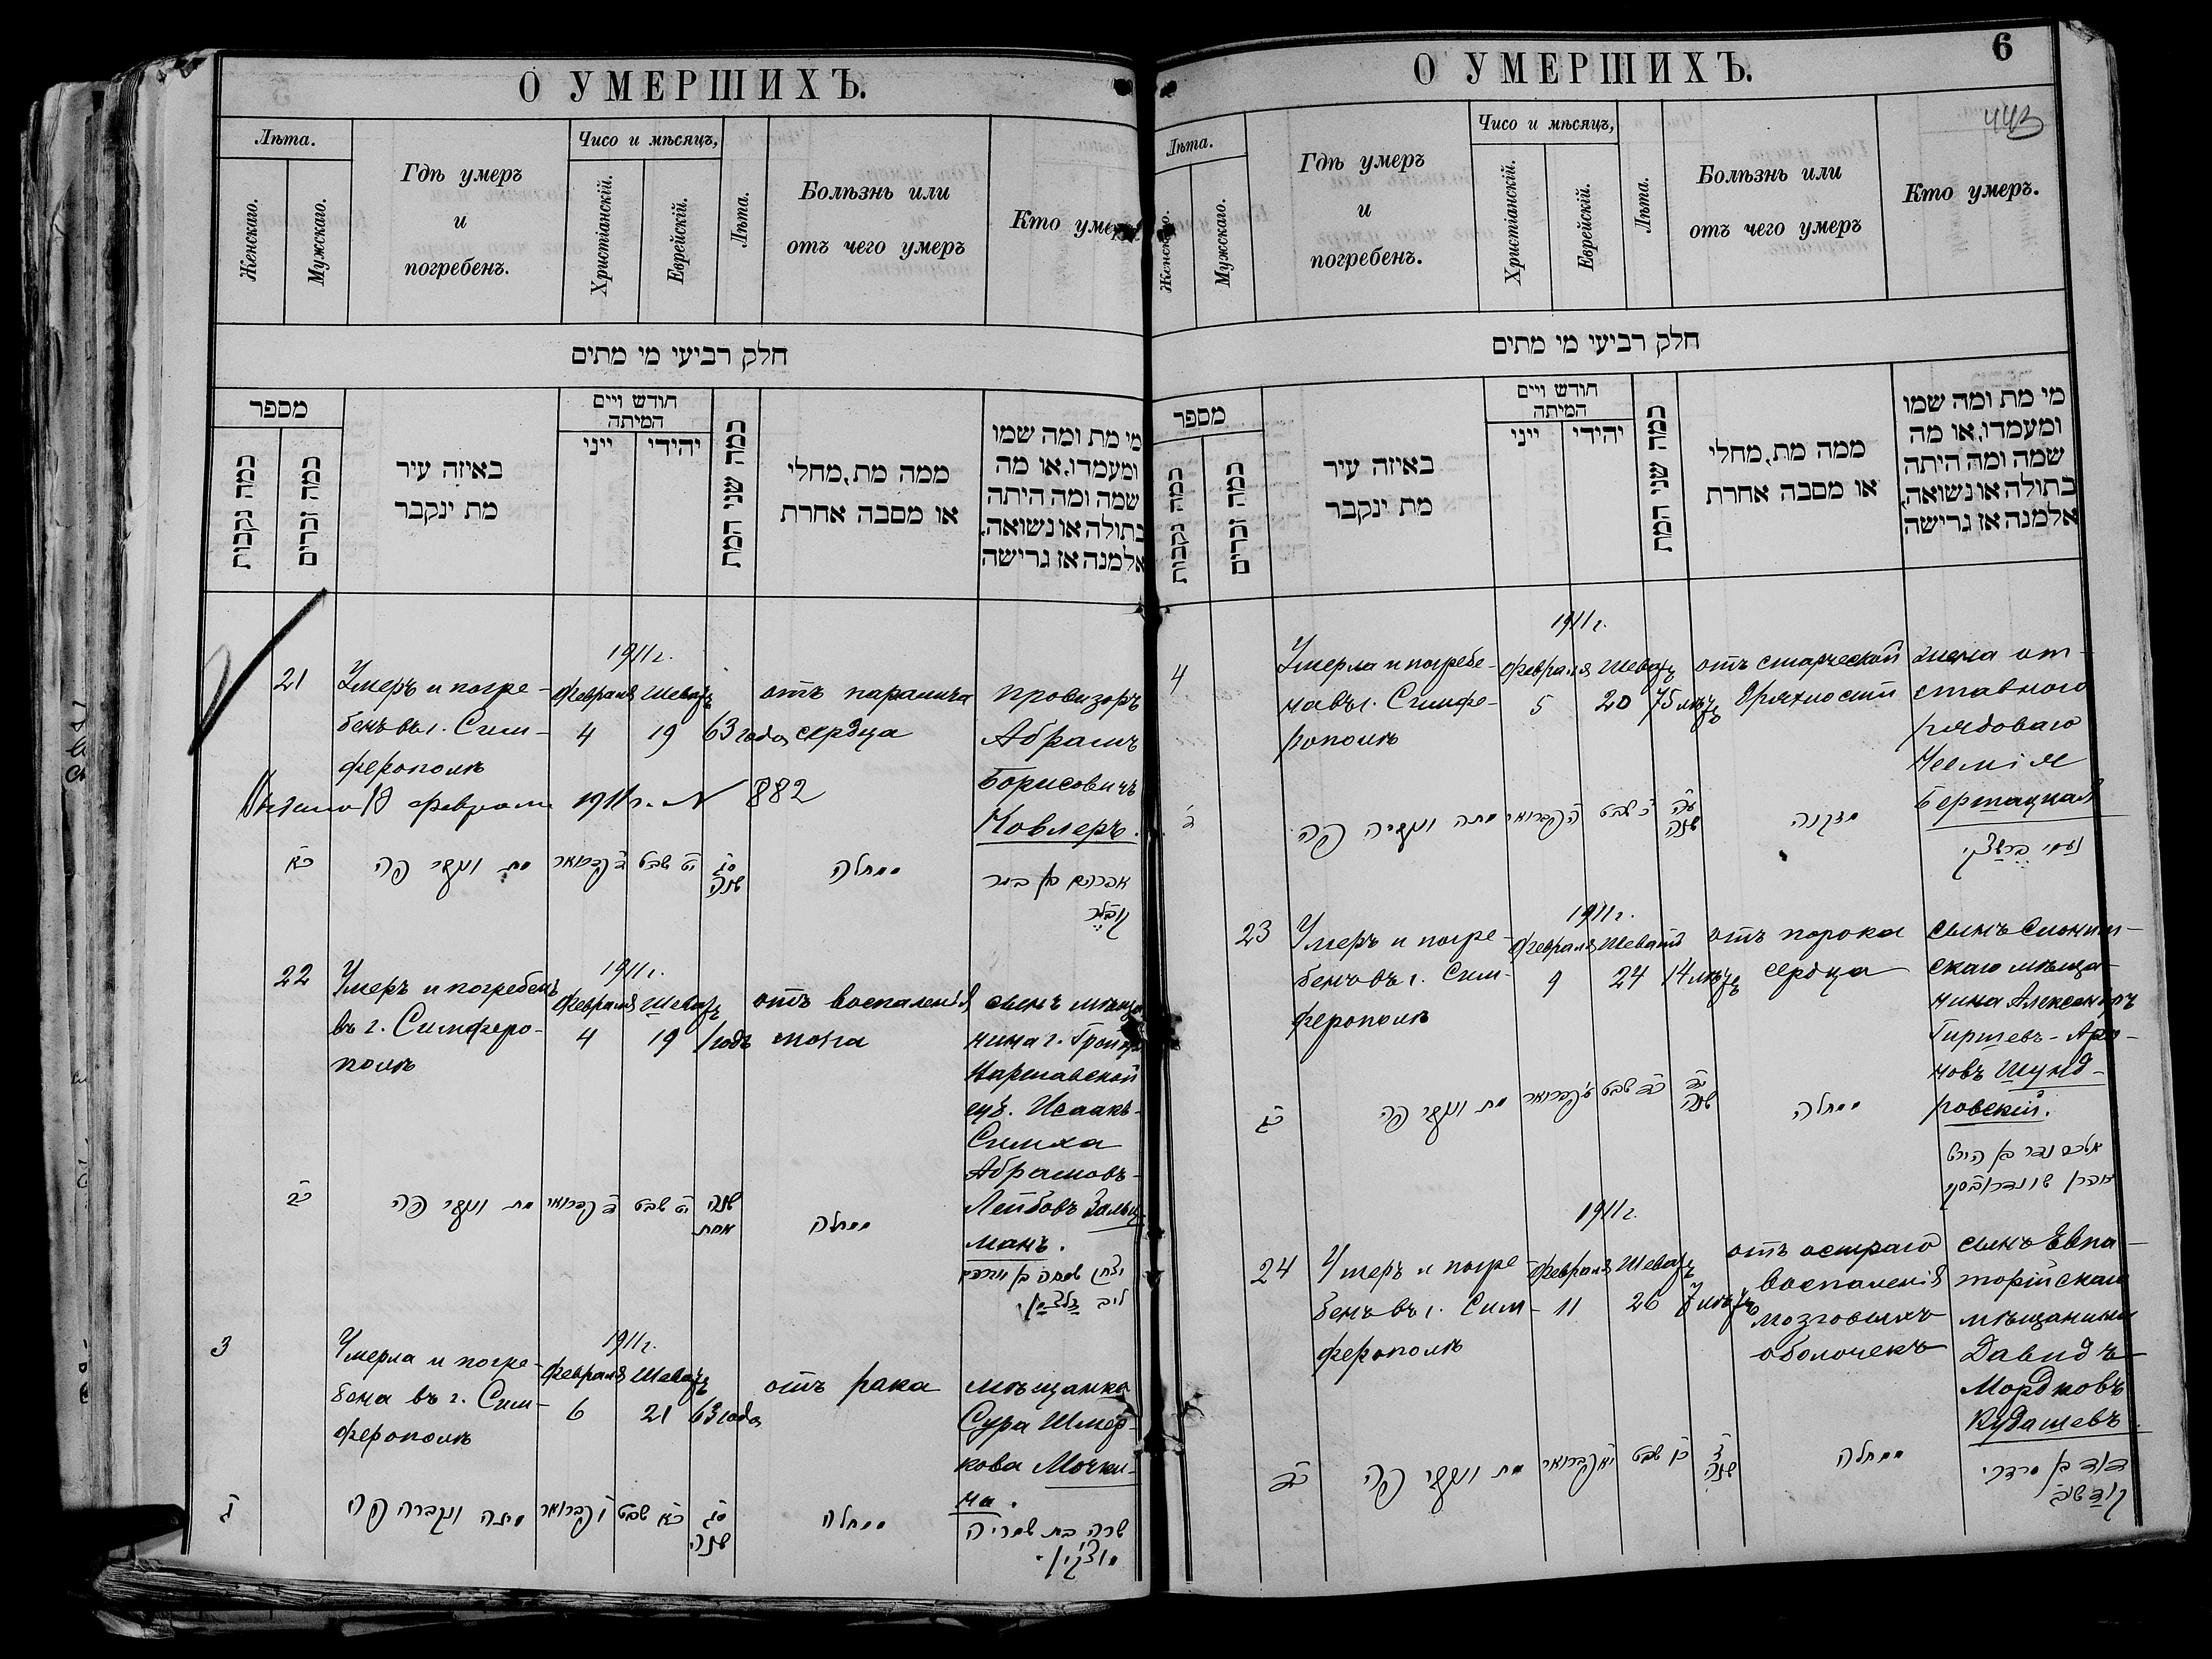 О УМЕРШИХЪ.
Лѣта.
Женскаго.
Мужскаго.
Гдѣ умеръ
и
погребенъ.
Чисо и мѣсяцъ,
Христіанскій.
Еврейскій.
Лѣта.
Болѣзнь или
отъ чего умеръ
Кто умеръ
חלק רביעי מי מתים
מספר
כמה נקבות
כמה זכרים
באיזה עיר
מת ינקבר
חודש ויים
המיתה
ייני
יהידי
כמה שני המת
ממה מת, מחלי
או מסבה אחרת
מי מת ומה שמו
ומעמדו, או מה
שמה ומה היתה
בתולה או נשואה,
אלמנה אז גרישה
21
Умеръ и погре-
бенъ въ г. Сим-
ферополѣ
1911 г.
Февраля
4
Шеватъ
19
63 года
отъ паралича
сердца
провизоръ
Абрамъ
Борисовичъ
Ковлеръ.
февраля 1911 г. N 882
כא
מת ונקבר פה
ד פברואר
יט שבט
סג
שנה
ממחלה
אברהם בן בער
קובלר
22
Умеръ и погребенъ
въ г. Симферо-
полѣ
1911 г.
Февраля
4
Шеватъ
19
1 годъ
отъ воспаленія
мозга
сынъ мѣща-
нина г.
Варшавской
губ. Исаакъ-
Симха
Абрамовъ-
Лейбовъ Зальц-
манъ.
כב
מת ונקבר פה
ד פברואר
יט שבט
שנה
אחת
ממחלה
יצחק שמחה בן אברהם
ליב זלצמן
3
Умерла и погре-
бена въ г. Сим-
ферополѣ
1911 г.
Февраля
6
Шеватъ
21
63 года
отъ рака
мѣщанка
Сура Шмер-
кова Мочки-
на.
ג
מתה ונקברה פה
ו פברואר
כא שבט
סג
שנה
ממחלה
שרה בת שמריה
מוצקין
О УМЕРШИХЪ.
6
443
Лѣта.
Женскаго.
Мужскаго.
Гдѣ умеръ
и
погребенъ.
Чисо и мѣсяцъ,
Христіанскій.
Еврейскій.
Лѣта.
Болѣзнь или
отъ чего умеръ
Кто умеръ.
חלק רביעי מי מתים
מספר
כמה נקבות
כמה זכרים
באיזה עיר
מת ינקבר
חודש ויים
המיתה
ייני
יהידי
כמה שני המת
ממה מת, מחלי
או מסבה אחרת
מי מת ומה שמו
ומעמדו, או מה
שמה ומה היתה
בתולה או נשואה,
אלמנה אז גרישה
4
Умерла и погребе-
на въ г. Симфе-
рополѣ
1911 г.
Февраля
5
Шеватъ
20
75 лѣтъ
отъ старческой
дряхлости
жена от-
ставного
рядоваго
Бершацкая
ד
מתה ונקברה פה
ה פברואר
כ שבט
עה
שנה
מזקנה
נעמי ברשצקי
23
Умеръ и погре-
бенъ въ г. Сим-
ферополѣ
1911 г.
Февраля
9
Шеватъ
24
14 лѣтъ
отъ порока
сердца
сынъ Слоним-
скаго мѣща-
нина Александръ
Гиршевъ-Аро-
новъ Шунд-
ровскій.
כג
מת ונקבר פה
ט פברואר
כד שבט
יד
שנה
ממחלה
אלכסנדר בן הירש
אהרן שונדרובסקי
24
Умеръ и погре-
бенъ въ г. Сим-
ферополѣ
1911 г.
Февраля
11
Шеватъ
26
7 лѣтъ
отъ остраго
воспаленія
мозговыхъ
оболочекъ
сынъ Евпа-
торійскаго
мѣщанина
Давидъ
Мордковъ
Кудашевъ.
כד
מת ונקבר פה
יא פברואר
כו שבט
ז
שנה
ממחלה
דוד בן מרדכי
קודשוב